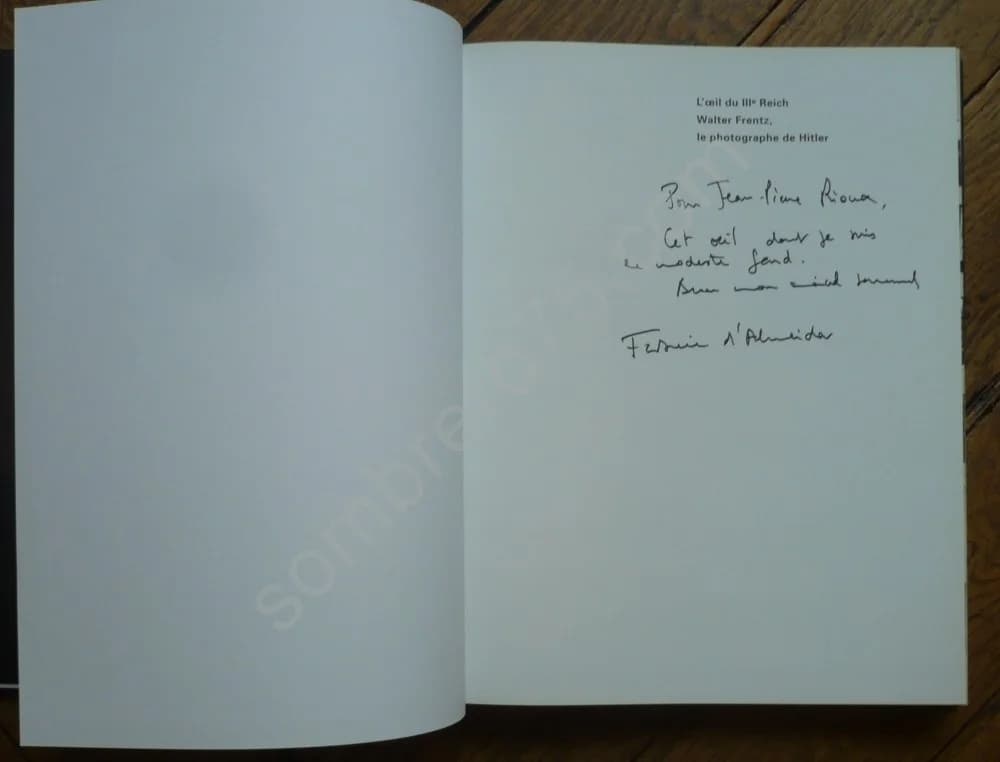 L'œil du IIIe Reich
Walter Frentz,
le photographe de Hitler
Pour Jean-Pierre Rioux,
Cet œil dont je suis
le modeste fond.
Avec mon amical souvenir
Fabrice d'Almeida
sombrero73.com